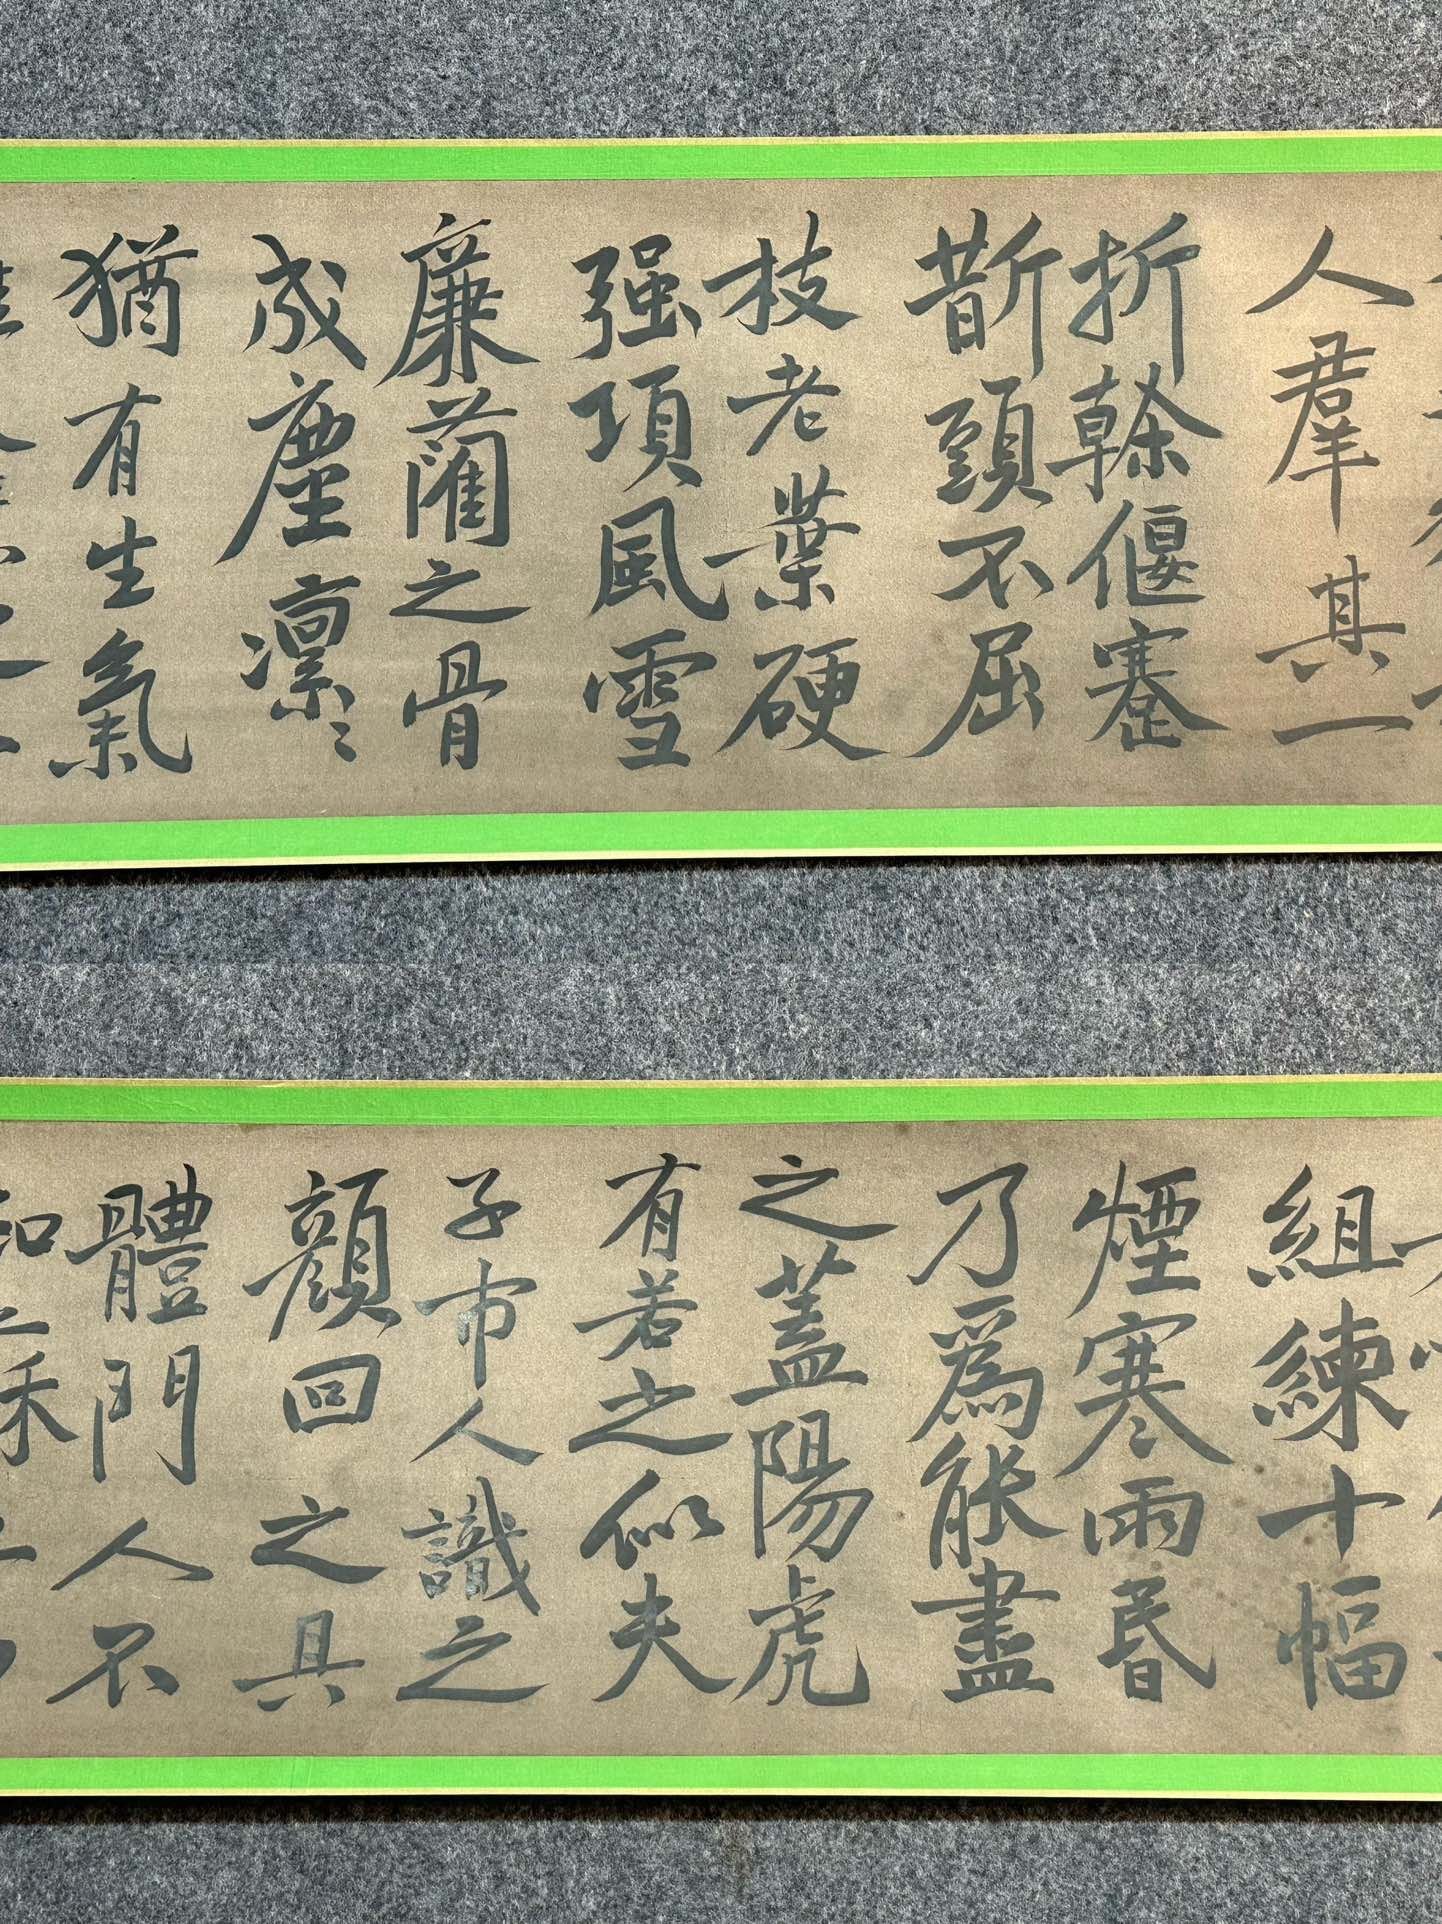 人羣其一
折榦偃蹇
斮頭不屈
枝老葉硬
强項風雪
廉藺之骨
成塵凛〻
猶有生氣
組練十幅
煙寒雨昏
乃爲能盡
之蓋陽虎
有若之似夫
子市人識之
顔回之具
體門人不